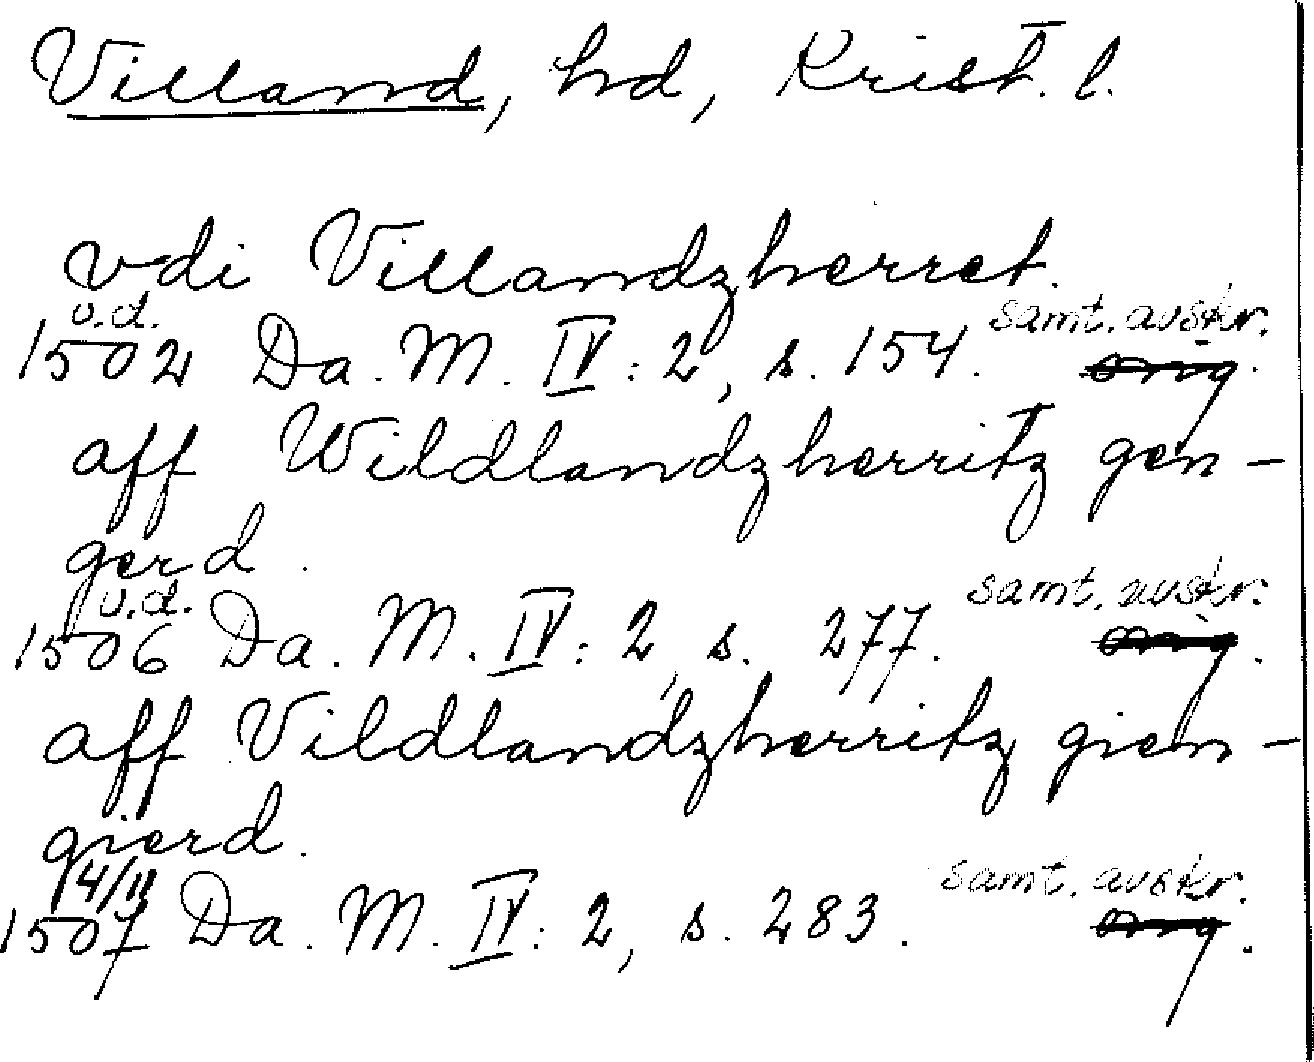 Villand, hd, Krist. l.
vdi Villandzherret.
u.d. samt. avskr.
1502 Da. M. IV: 2, s. 154. orig.
aff Wildlandzherritz gen-
gerd.
u.d. samt. avskr.
1506 Da. M. IV: 2, s. 277. orig.
aff Vildlandzherritz gien-
gierd.
14/11 samt. avskr.
1507 Da. M. IV: 2, s. 283. orig.